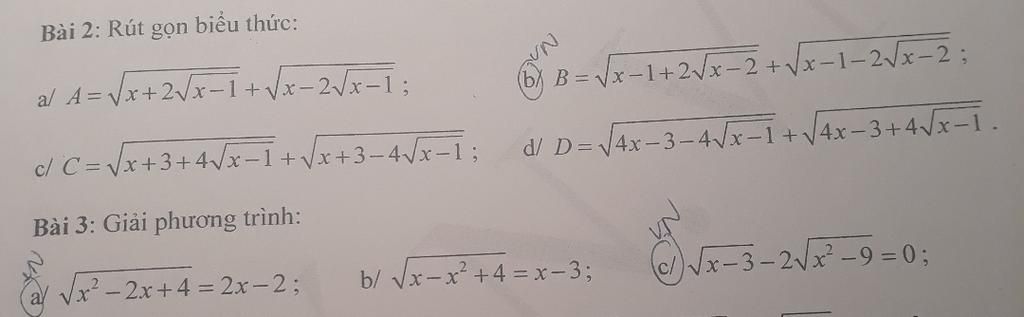 Bài 2: Rút gọn biểu thức:
a/ A = √(x+2√(x−1)) + √(x−2√(x−1)) ; VN b/ B = √(x−1+2√(x−2)) + √(x−1−2√(x−2)) ;
c/ C = √(x+3+4√(x−1)) + √(x+3−4√(x−1)) ; d/ D = √(4x−3−4√(x−1)) + √(4x−3+4√(x−1)) .
Bài 3: Giải phương trình:
VN a/ √(x²−2x+4) = 2x−2 ; b/ √(x−x²+4) = x−3 ; VN c/ √(x−3) − 2√(x²−9) = 0 ;